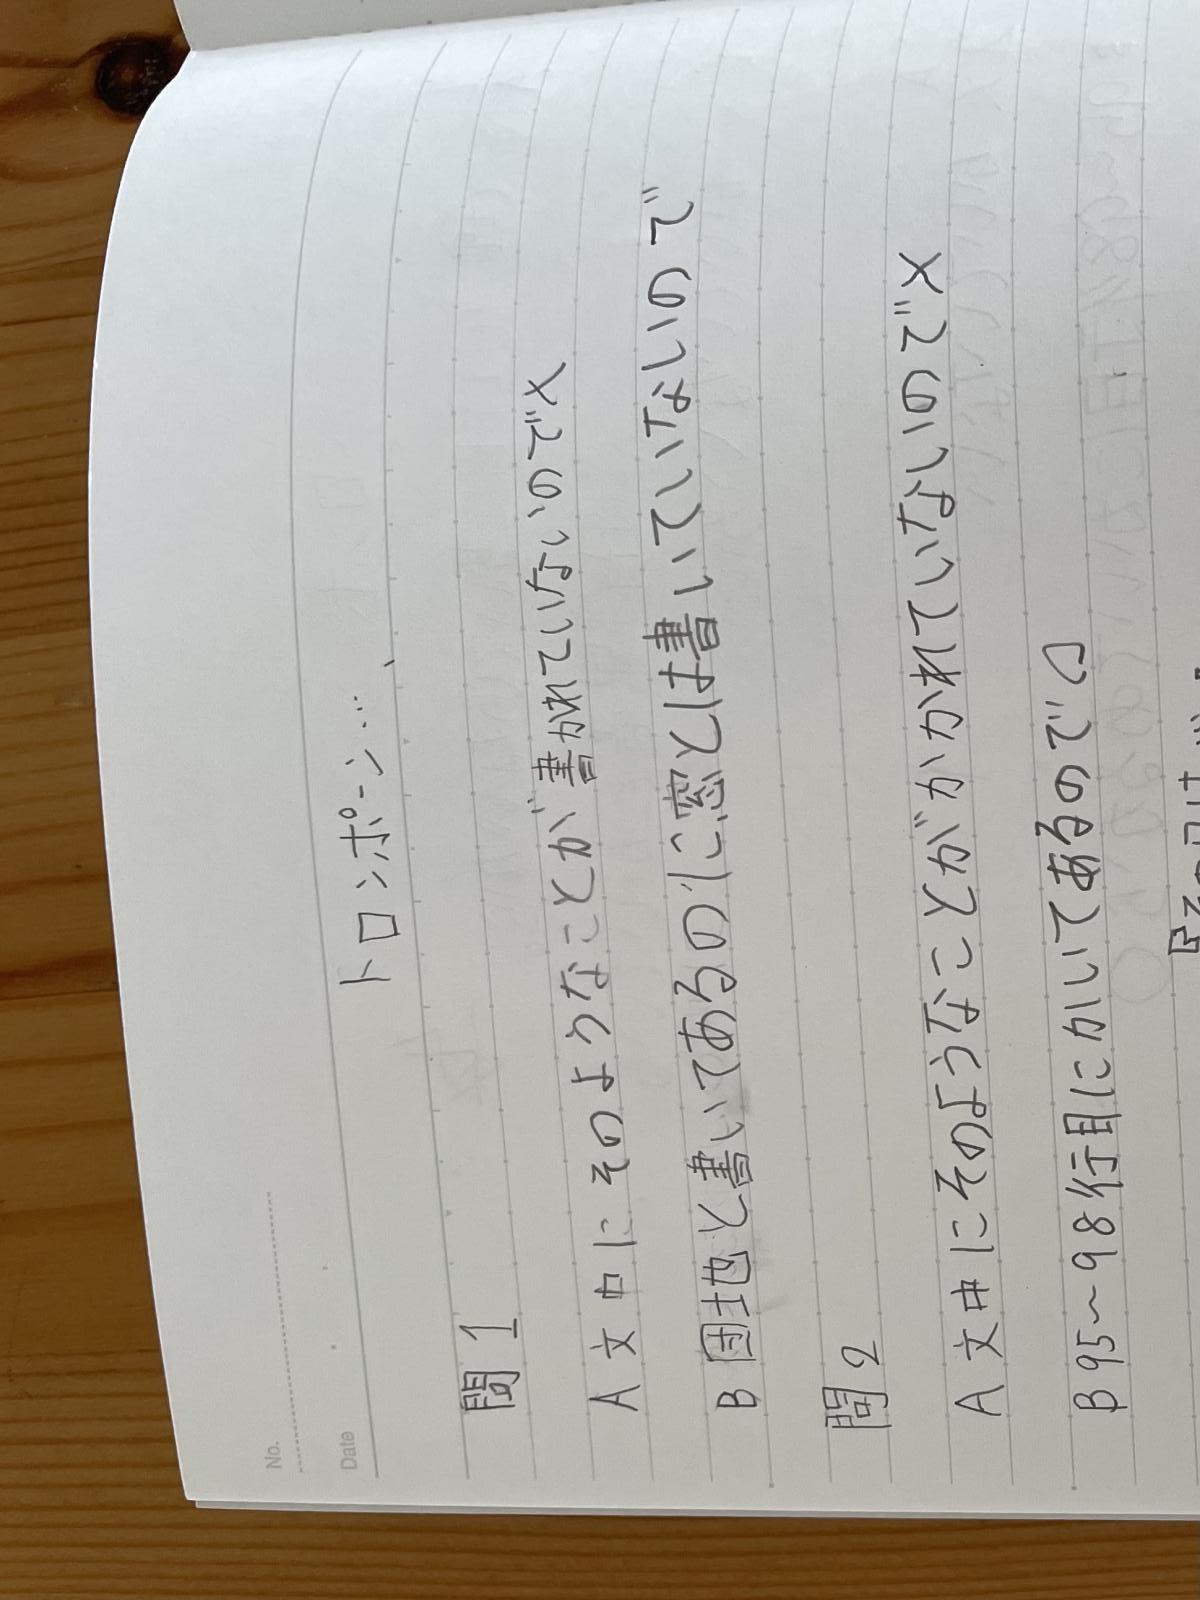 No.
Date
トロンボーン…
問1
A 文中にそのようなことが書かれていないのでX
B 団地と書いてあるのに窓とは書いていないので
問2
A 文中にそのようなことがかかれていないのでX
B 95〜98行目にかいてあるので〇